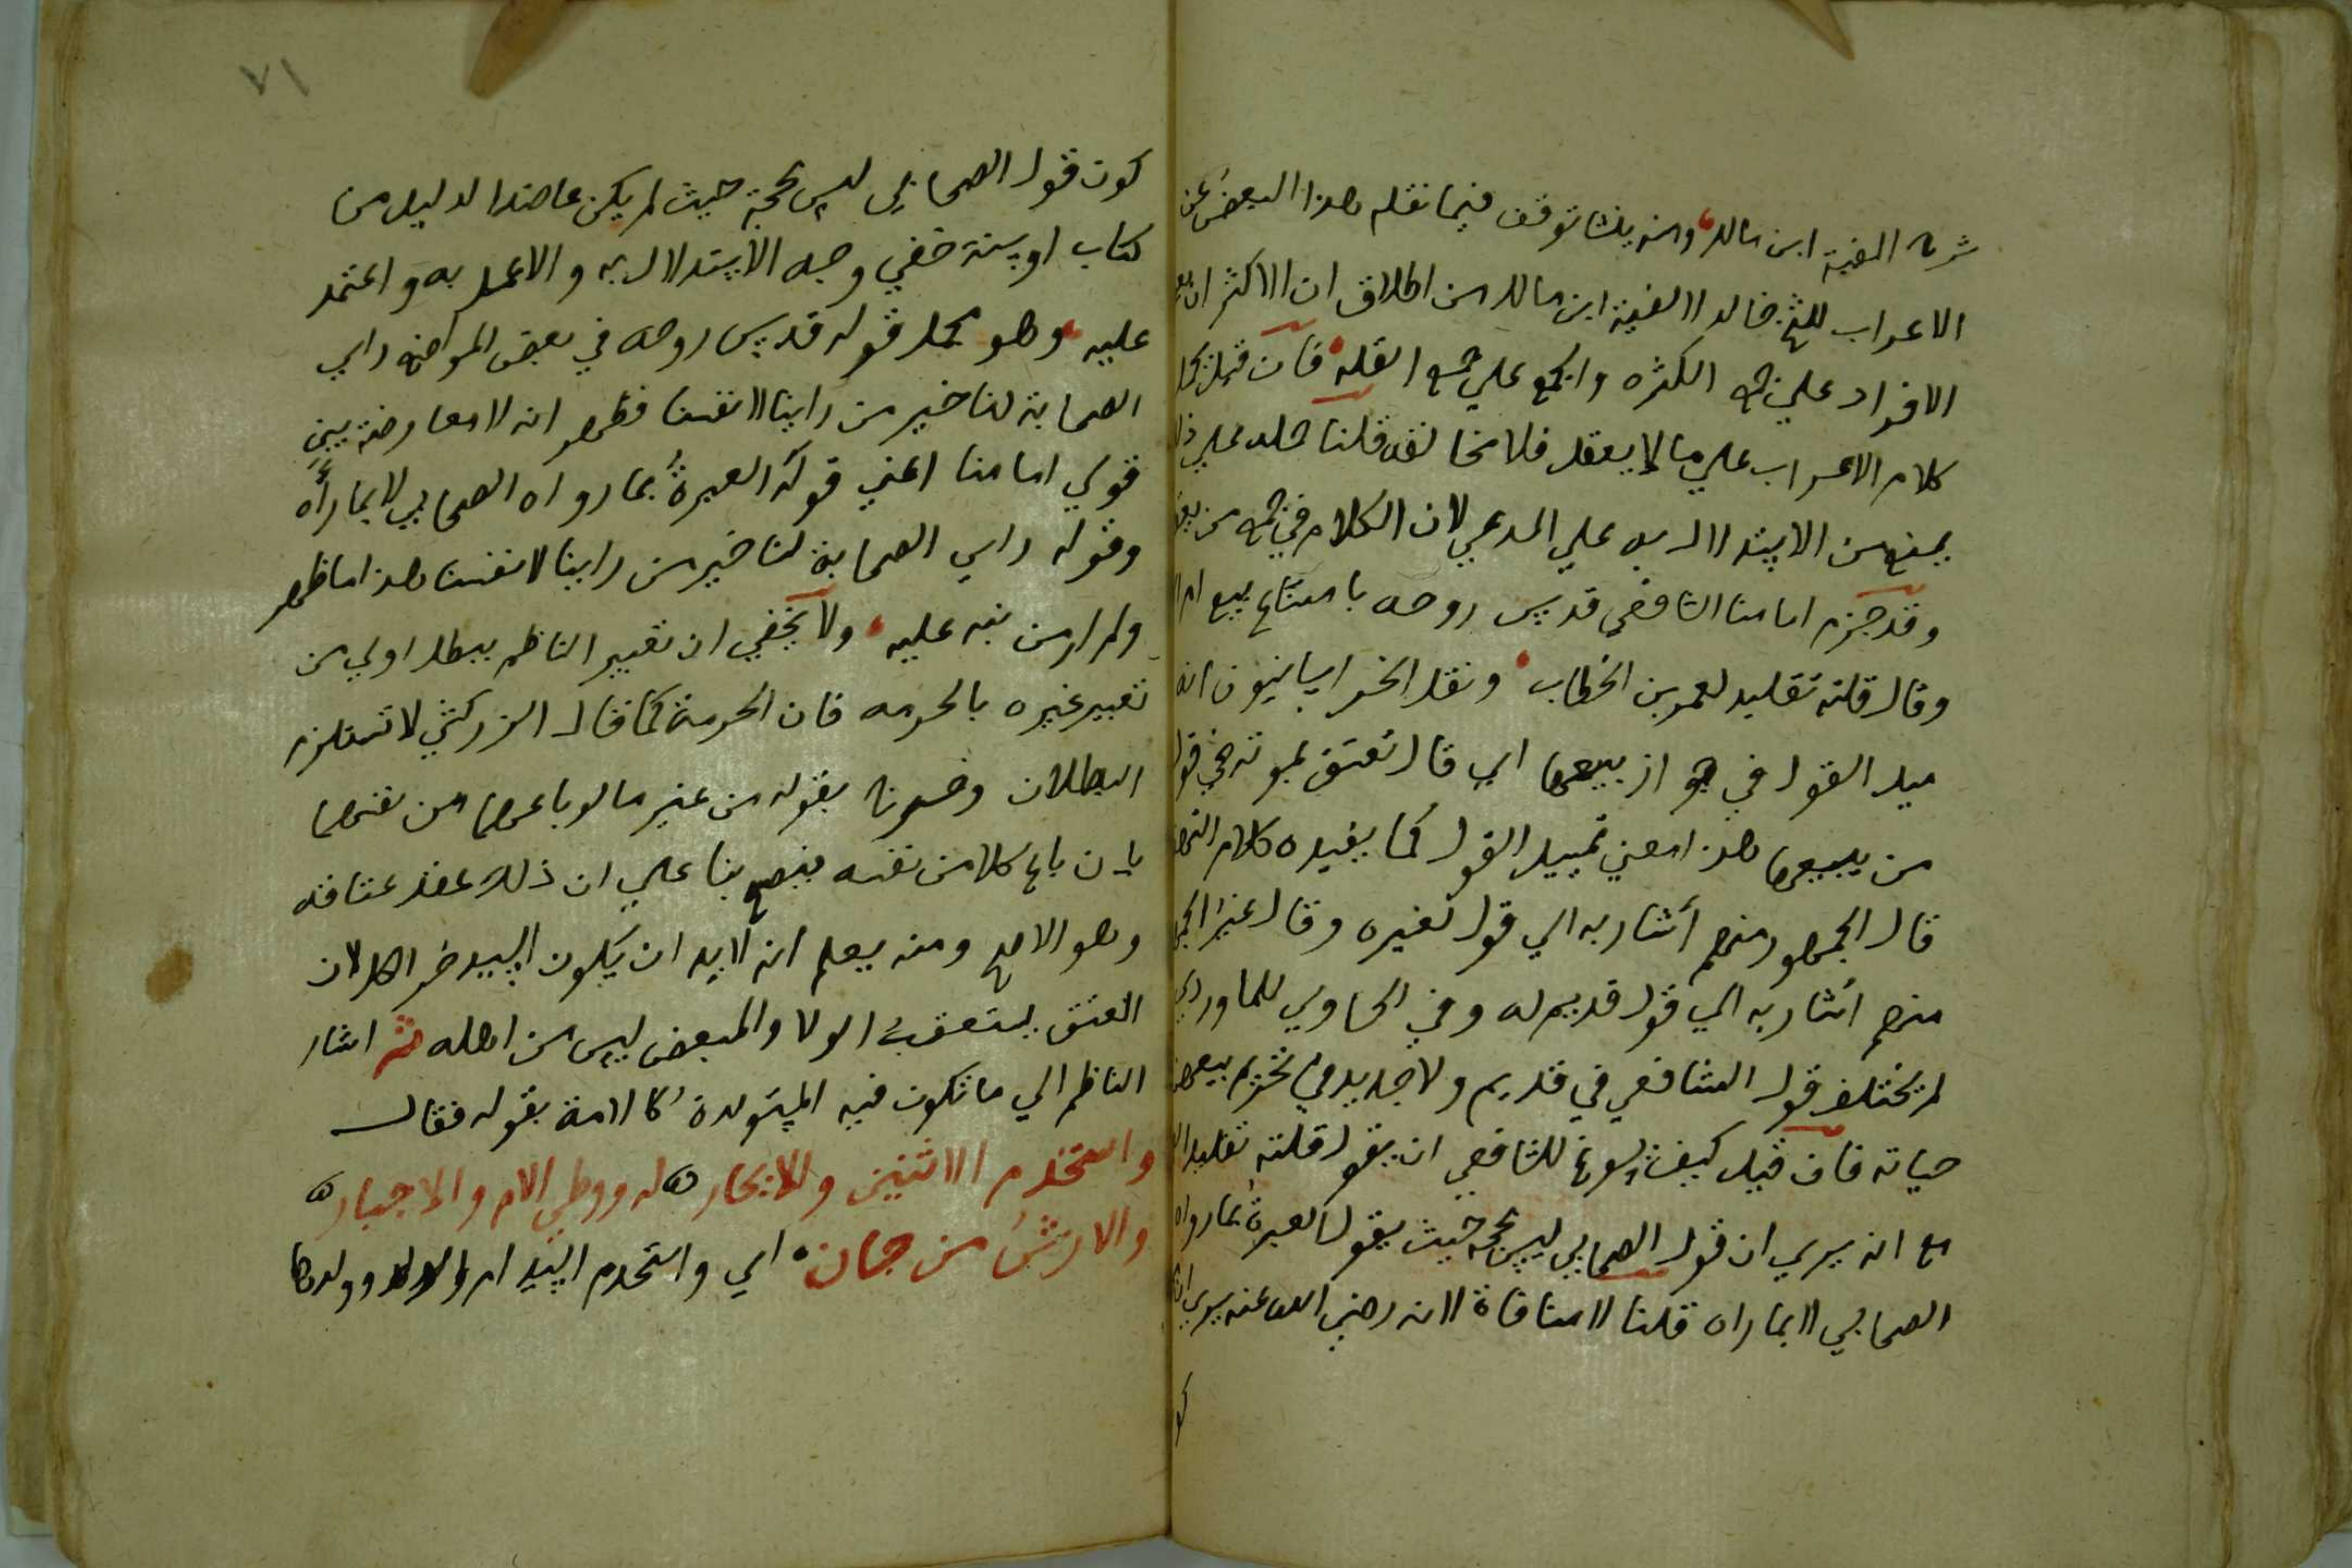 شرح الفية ابن مالك ومنه ينشا توقف فيما نقله هذا البعض عن
الاعراب للشيخ خالد الالفية ابن مالك من اطلاق ان الاكثر ان
الافراد علي جمع الكثره والجمع علي جمع القله فان قيل
كلام الاعراب علي ما لا يعقل فلا مخالفه قلنا حمله علي
يمنع من الاستدلال به علي المدعي لان الكلام في جمع من
وقد جزم امامنا الشافعي قدس روحه بامتناع بيع ام
وقال قلته تقليد لعمر بن الخطاب ونقل الخراسانيون انه
ميل القول في جواز بيعها اي قال تعتق بموته في
من يبيعها هذا معني تمييل القول كما يفيده كلام
قال الجمهور منهم أشار به الي قول لغيره وقال غير
منهم اشار به الي قول قديم له وفي الحاوي للماوردي
لم يختلف قول الشافعي في قديم ولا جديد في تحريم بيعهن
حياته فان قيل كيف يسوغ للشافعي ان يقول قلته تقليدا
مع انه يري ان قول الصحابي ليس بحجه حيث يقول العبرة بما رواه
الصحابي لا بما راه قلنا لا منافاة لانه رضي الله عنه يري
كو
٧١
كون قول الصحابي ليس بحجة حيث لم يكن عاضدا لدليل من
كتاب او سنة خفي وجه الاستدلال به والاعمل به واعتمد
عليه وهو محمل قوله قدس روحه في بعض المواضع راي
الصحابة لنا خير من راينا لانفسنا فظهر انه لا معارضة بين
قولي امامنا اعني قوله العبرةُ بما رواه الصحابي لا بما رأَه
وقوله راي الصحابة لنا خير من راينا لانفسنا هذا ما ظهر
ولم ار من نبه عليه ولا يخفي ان تعبير الناظم ببطل اولي من
تعبير غيره بالحرمه فان الحرمة كما قال الزركشي لا تستلزم
البطلان وخرج بقوله من غير ما لو باعها من نفسها
بان باع كلا من نفسه فيصح بنا علي ان ذلك عقد عتاقه
وهو الاصح ومنه يعلم انه لابد ان يكون السيد حر الكل لان
العتق يستعقب الولا والمبعض ليس من اهله ثم اشار
الناظم الي ما تكون فيه المستولدة كالامة بقوله فقال
واستخدم الاثنين والايجار ه له ووطي الام والاجبار ه
والارشُ من جان اي واستخدم السيد ام وولدها